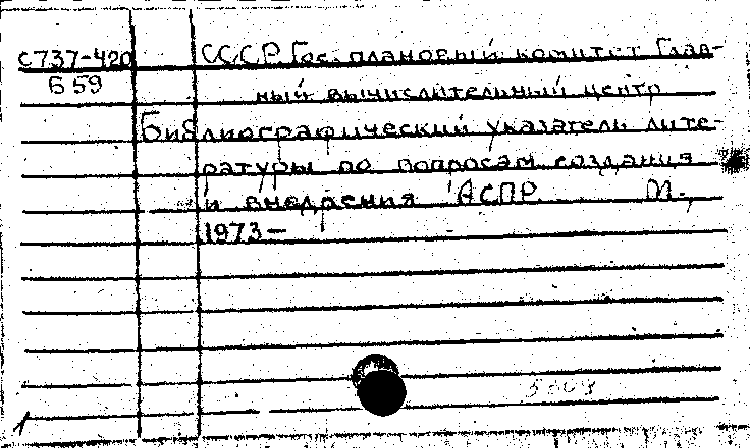 С737-420 СССР. Гос. плановый комитет. Глав-
Б 59 ный вычислительный центр
Библиографический указатель лите-
ратуры по вопросам создания
и внедрения АСПР. М.,
1973—